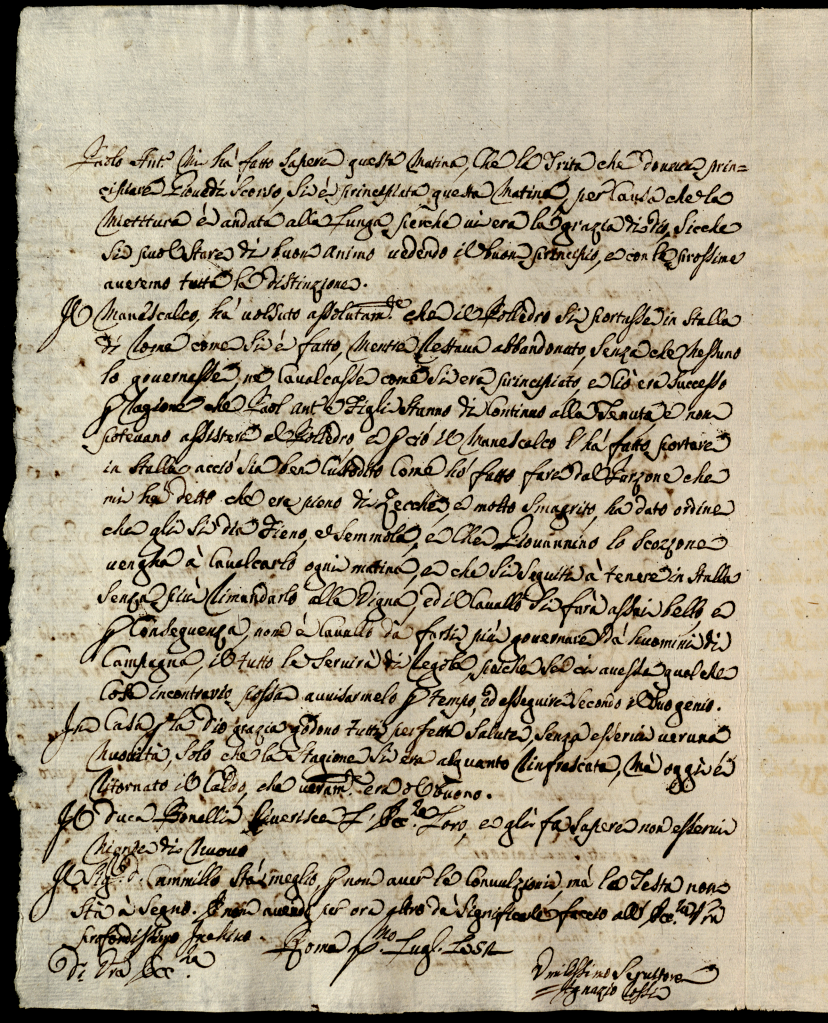 Paolo Ant.º Mi há fatto sapere questa Matina, Che la Trita che doueua prin=
cipiare Giouedì Scorso, Si é principiata questa Matina, per causa che la
Mietitura é andata alla Lunga perche ui era la grazia di Dio, Sicche
Si puol Stare di buon animo uedendo il buon principio, e con le prossime
aueremo tutta la distinzione.
Il Manescalco, há uolsuto assolutam.te che il Polledro Si portasse in Stalla
di Roma come Si é fatto, Mentre Restaua abbandonato, Senza che Nessuno
lo gouernasse, ne Caualcasse come Si era principiato, e Ciò era Successo
p Cagione che Paol Ant.º e Figli Stanno di Continuo alla Tenuta e non
poteuano assistere al Polledro e p ció il Manescalco l'há fatto portare
in Stalla acció Sia ben Custodito Come hó fatto fare dal Garzone che
mi há detto che era pieno di Zecche, e molto Smagrito, ha dato ordine
che gli Si dia Fieno, e Semmola, e Che Giouannino lo Scozzone
uengha à Caualcarlo ogni matina, e che Si Seguiti à tenere in Stalla
Senza piú Rimandarlo alla Vigna, ed il Cauallo Si fará assai bello, e
p Conseguenza, non é Cauallo da farsi piú gouernare dá huomini di
Campagna, il tutto le Seruirá di Regola, poiche Se ci auesse qualche
Cosa incontrario possa auuisarmelo p tempo, ed esseguire Secondo il Suo genio.
In Casa p la Dio grazia godono tutti perfetta Salute, Senza esserui ueruna
Nuouitá, Solo che la Stagione Si era alquanto Rinfrescata, Má oggi é
Ritornato il Caldo, che ueram.te era il buono.
Il Duca Bonelli Riuerisce l' Ecc.ze Loro, e gli fa Sapere non esserui
Niente di Nuouo
Il Sig.r D. Cammillo Stá meglio, p non auer le Conuulzioni, má la Testa non
Stá à Segno. E non auendo per ora altro dá Significarle faccio all' Ecc.za Vra
profondissimo Inchino.
Roma p.mo Lugl.
Di Vra Ecc.za
Vmilissimo Seruitore
Ignazio